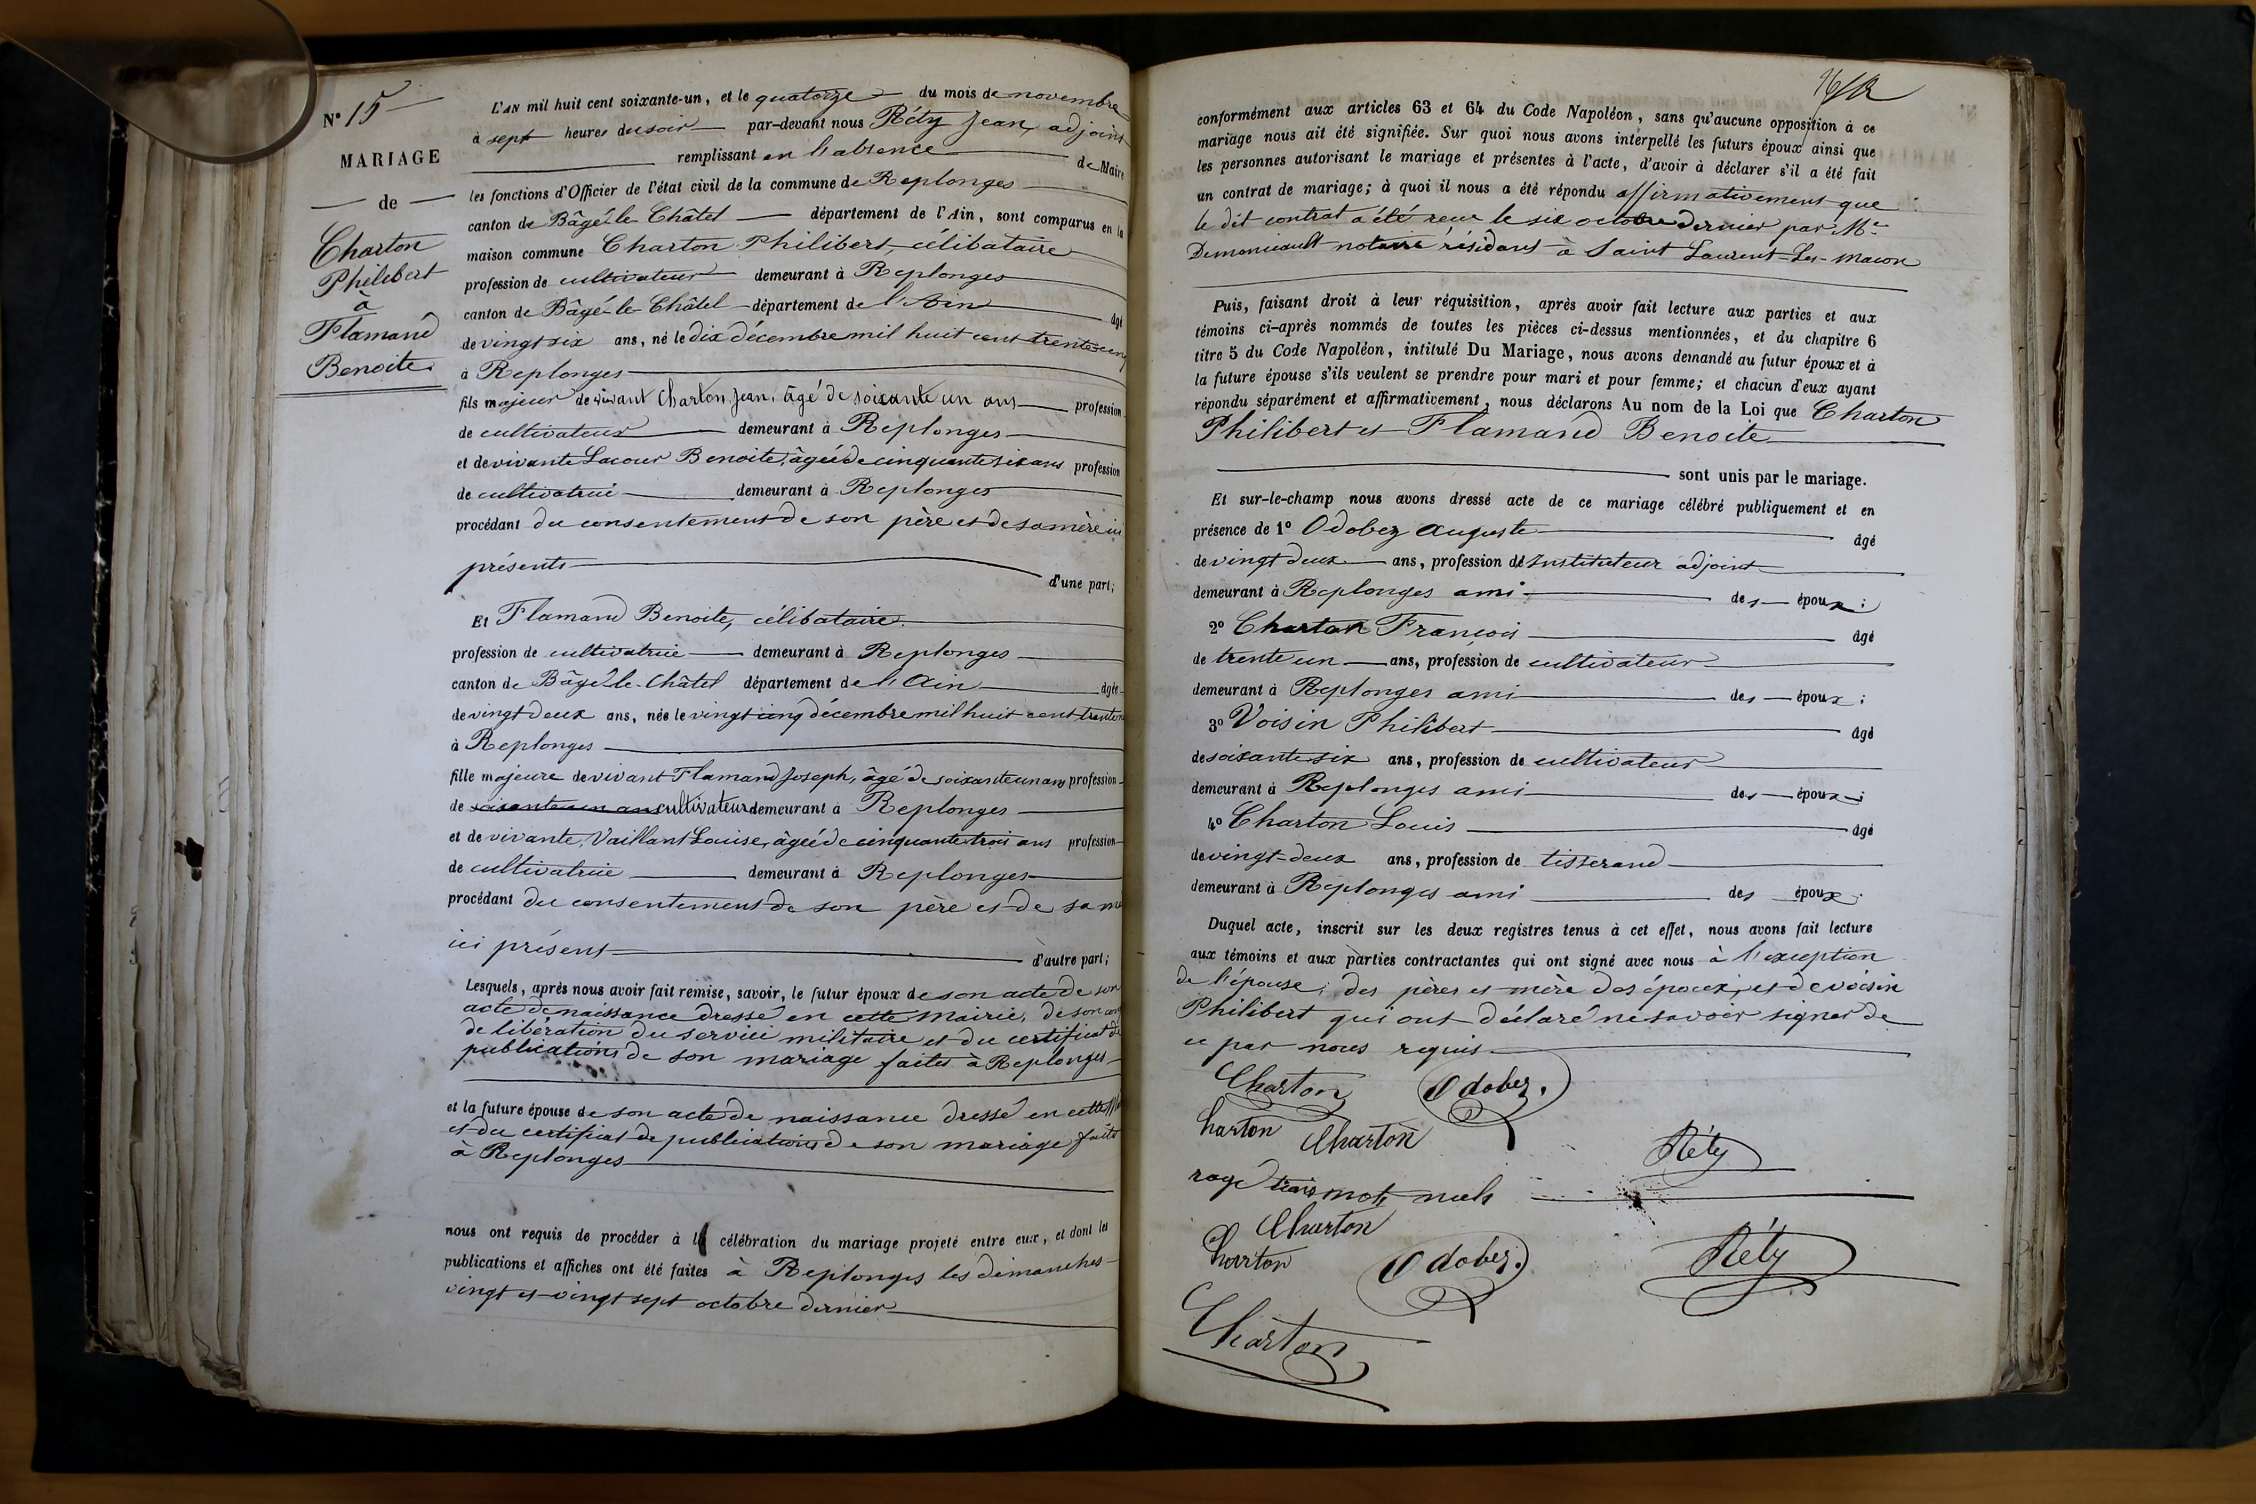 N° 15
MARIAGE
de
Charton
Philibert
à
Flamand
Benoite
L'AN mil huit cent soixante-un, et le quatorze du mois de novembre
à sept heures du soir par-devant nous Réty Jean, adjoint
remplissant en l'absence de Maire
les fonctions d'Officier de l'état civil de la commune de Replonges
canton de Bâgé-le-Châtel département de l'Ain, sont comparus en la
maison commune Charton Philibert, célibataire
profession de cultivateur demeurant à Replonges
canton de Bâgé-le-Châtel département de l'Ain âgé
de vingt six ans, né le dix décembre mil huit cent trente cinq
à Replonges
fils majeur de vivant Charton Jean, âgé de soixante un ans profession
de cultivateur demeurant à Replonges
et de vivante Lacour Benoite, âgée de cinquante six ans profession
de cultivatrice demeurant à Replonges
procédant du consentement de son père et de sa mère ici
présents d'une part;
Et Flamand Benoite, célibataire
profession de cultivatrice demeurant à Replonges
canton de Bâgé-le-Châtel département de l'Ain âgée
de vingt deux ans, née le vingt cinq décembre mil huit cent trente
à Replonges
fille majeure de vivant Flamand Joseph, âgé de soixante un ans profession
de soixante un ans cultivateur demeurant à Replonges
et de vivante Vaillant Louise, âgée de cinquante trois ans profession
de cultivatrice demeurant à Replonges
procédant du consentement de son père et de sa mè
ici présent d'autre part;
Lesquels, après nous avoir fait remise, savoir, le futur époux de son acte de son
acte de naissance dressé en cette Mairie, de son
de libération du service militaire et du certificat de
publications de son mariage faites à Replonges
et la future épouse de son acte de naissance dressé en cette
et du certificat de publications de son mariage faite
à Replonges
nous ont requis de procéder à la célébration du mariage projeté entre eux, et dont les
publications et affiches ont été faites à Replonges les dimanches
vingt et vingt sept octobre dernier
conformément aux articles 63 et 64 du Code Napoléon, sans qu'aucune opposition à ce
mariage nous ait été signifiée. Sur quoi nous avons interpellé les futurs époux ainsi que
les personnes autorisant le mariage et présentes à l'acte, d'avoir à déclarer s'il a été fait
un contrat de mariage; à quoi il nous a été répondu affirmativement que
le dit contrat a été reçu le six octobre dernier par Me
notaire résidant à Saint Laurent-Les-Macon
Puis, faisant droit à leur réquisition, après avoir fait lecture aux parties et aux
témoins ci-après nommés de toutes les pièces ci-dessus mentionnées, et du chapitre 6
titre 5 du Code Napoléon, intitulé Du Mariage, nous avons demandé au futur époux et à
la future épouse s'ils veulent se prendre pour mari et pour femme; et chacun d'eux ayant
répondu séparément et affirmativement, nous déclarons Au nom de la Loi que Charton
Philibert et Flamand Benoite
sont unis par le mariage.
Et sur-le-champ nous avons dressé acte de ce mariage célébré publiquement et en
présence de 1° Odobez Auguste âgé
de vingt deux ans, profession de Instituteur adjoint
demeurant à Replonges ami des époux;
2° Charton François âgé
de trente un ans, profession de cultivateur
demeurant à Replonges ami des époux;
3° Voisin Philibert âgé
de soixante six ans, profession de cultivateur
demeurant à Replonges ami des époux;
4° Charton Louis âgé
de vingt-deux ans, profession de tisserand
demeurant à Replonges ami des époux.
Duquel acte, inscrit sur les deux registres tenus à cet effet, nous avons fait lecture
aux témoins et aux parties contractantes qui ont signé avec nous à l'exception
de l'épouse, des pères et mère des époux, et de voisin
Philibert qui ont déclaré ne savoir signer de
ce par nous requis
Charton Odobez.
harton Charton Réty
rayé trois mots nuls
Charton
Charton Odobez. Réty
Charton